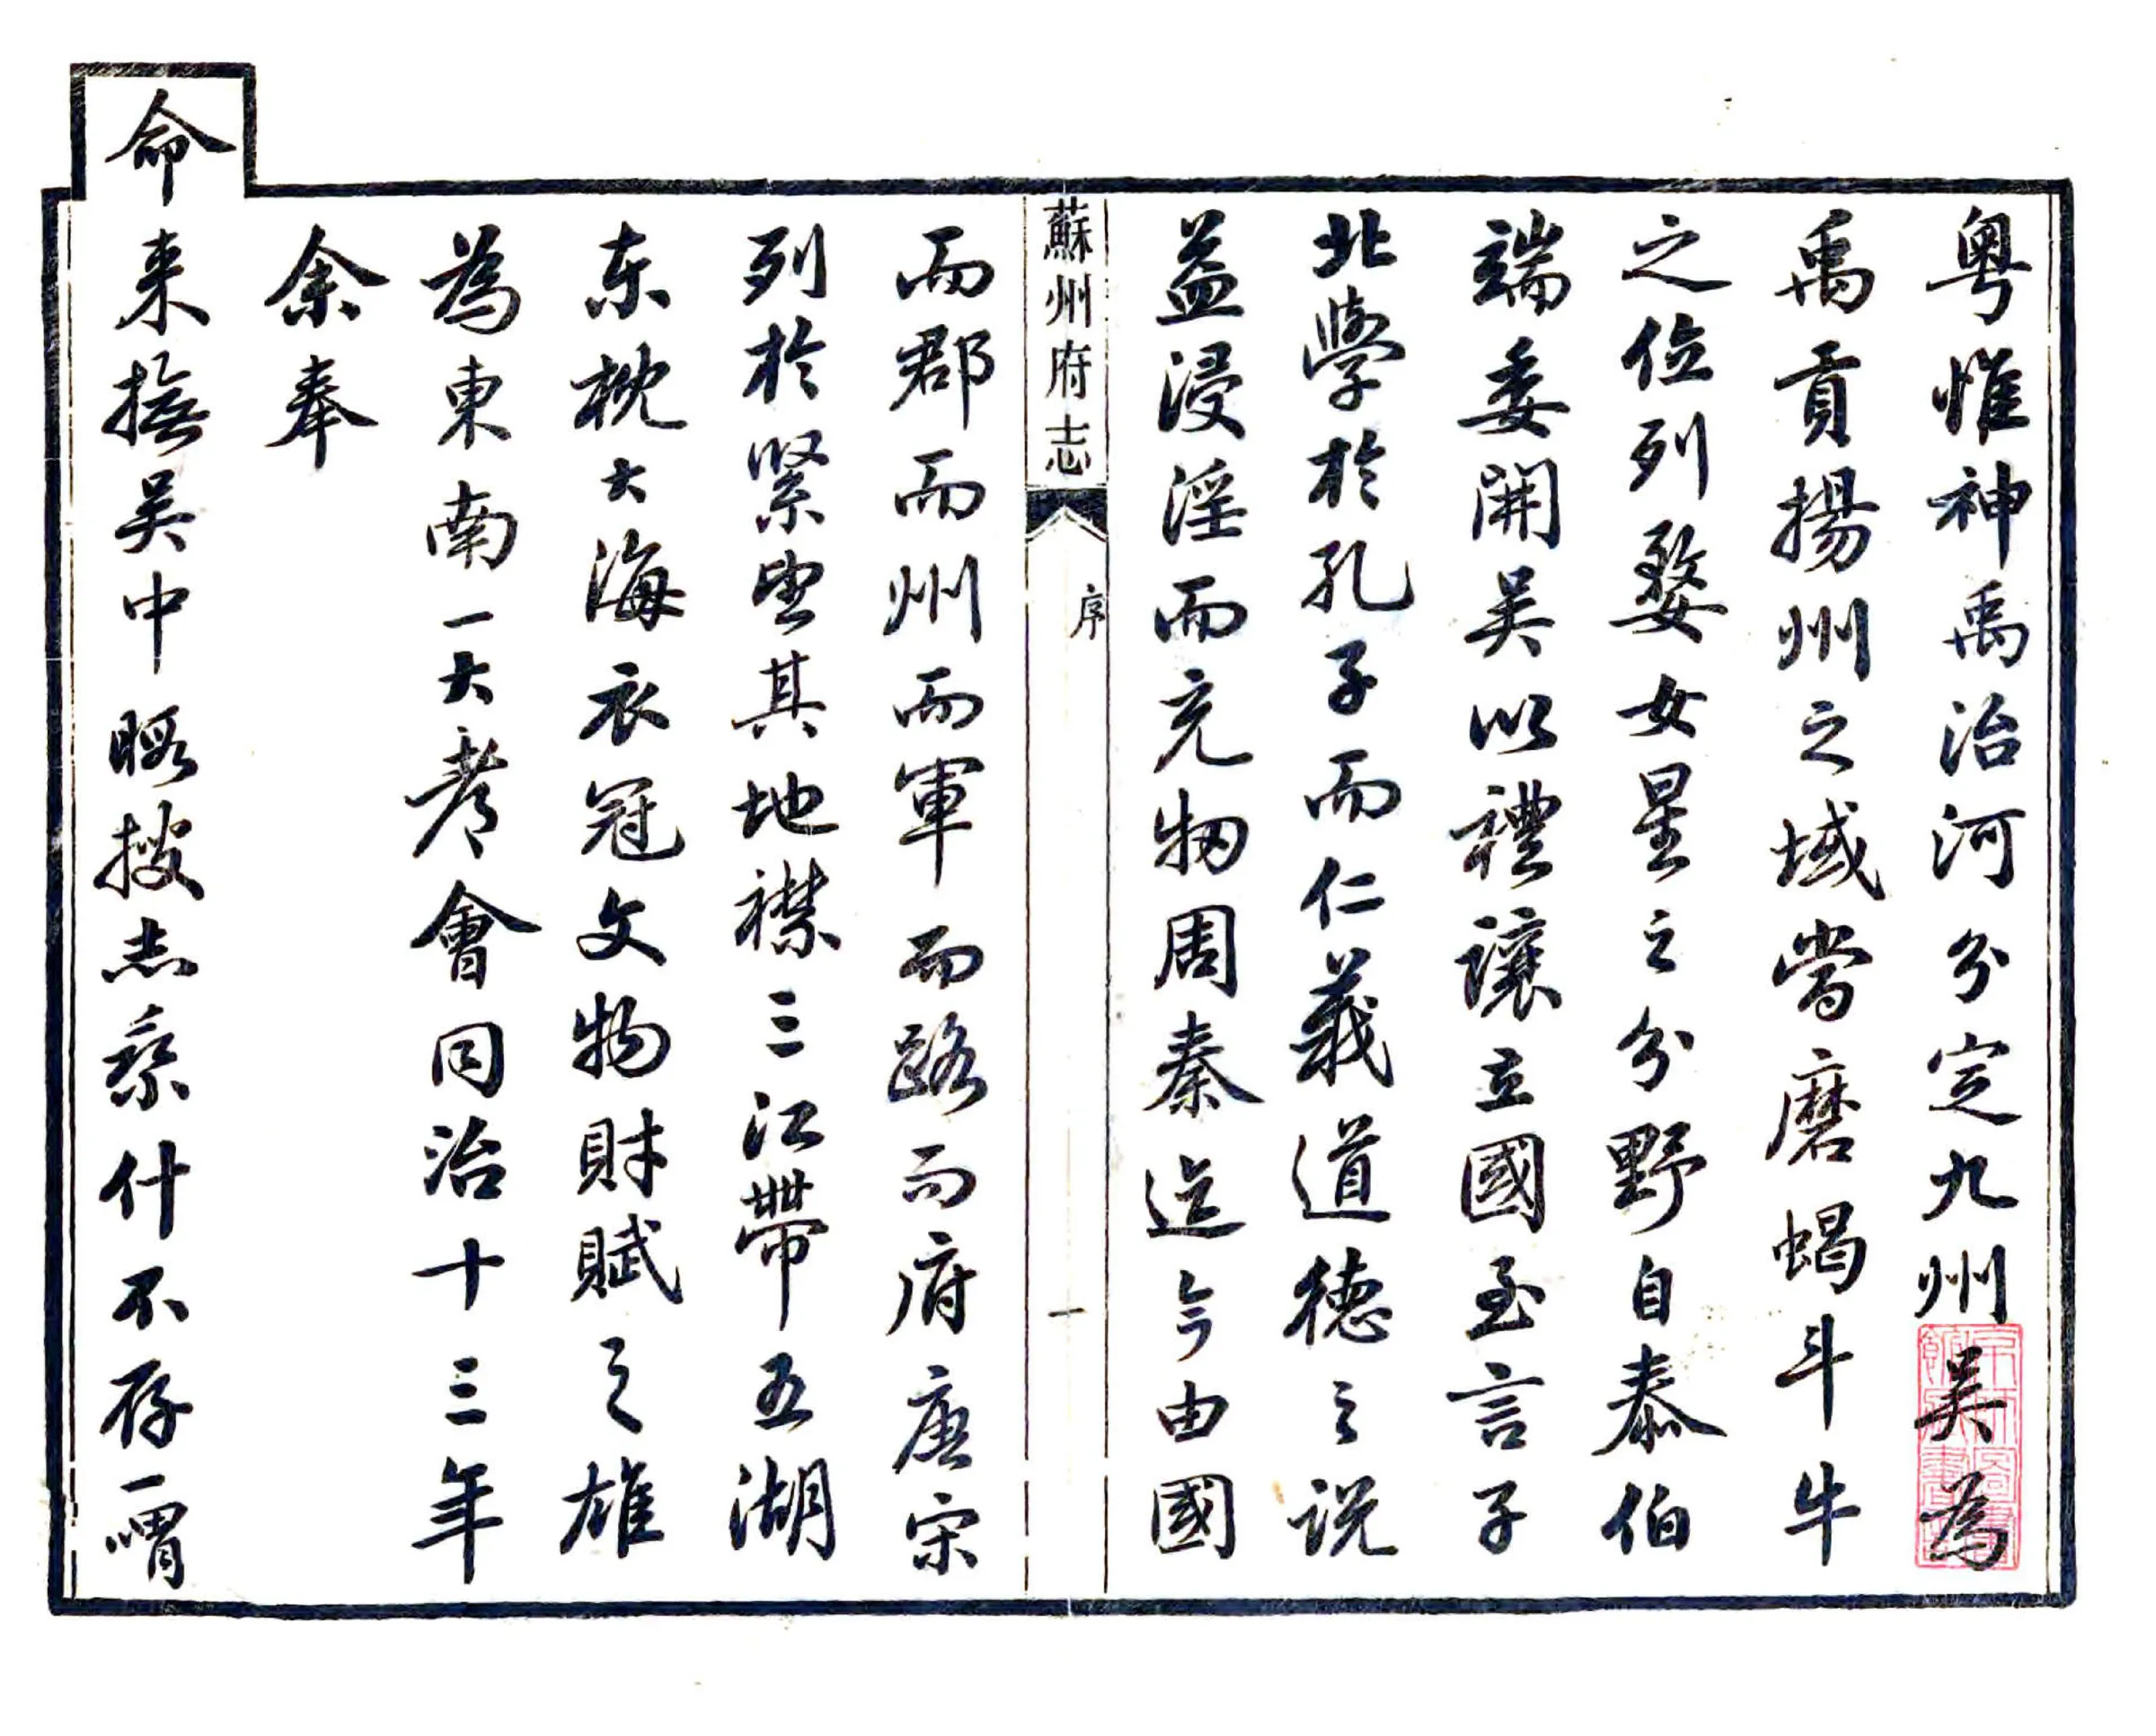 粤惟神禹治河分定九州吴為
禹貢揚州之域當磨蝎斗牛
之位列婺女星之分野自泰伯
端委開吴以禮讓立國至言子
北學於孔子而仁義道德之説
益浸淫而充牣周秦迄今由國
蘇州府志
序
一
而郡而州而軍而路而府唐宋
列於緊望其地襟三江帶五湖
東枕大海衣冠文物財賦之雄
為東南一大都會同治十三年
余奉
命
来撫吴中暇搜志乘什不存一喟